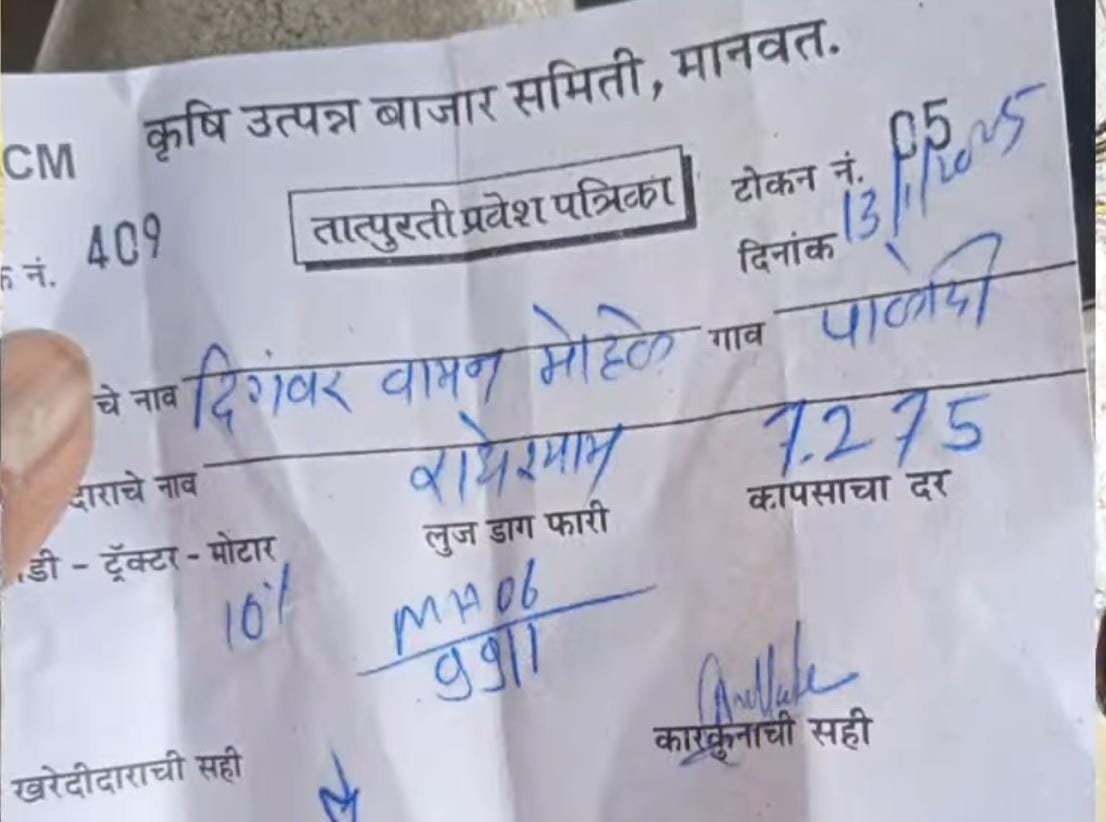 कृषि उत्पन्न बाजार समिती, मानवत.
CM
तात्पुरती प्रवेश पत्रिका
टोकन नं. 05
नं. 409
दिनांक 13/1/2025
चे नाव दिगंबर वामन मोहिते गाव पाळोदी
दाराचे नाव राधेश्याम 7.275
लुज डाग फारी कापसाचा दर
डी - ट्रॅक्टर - मोटार
10% MH 06
9911
कारकुनाची सही
खरेदीदाराची सही